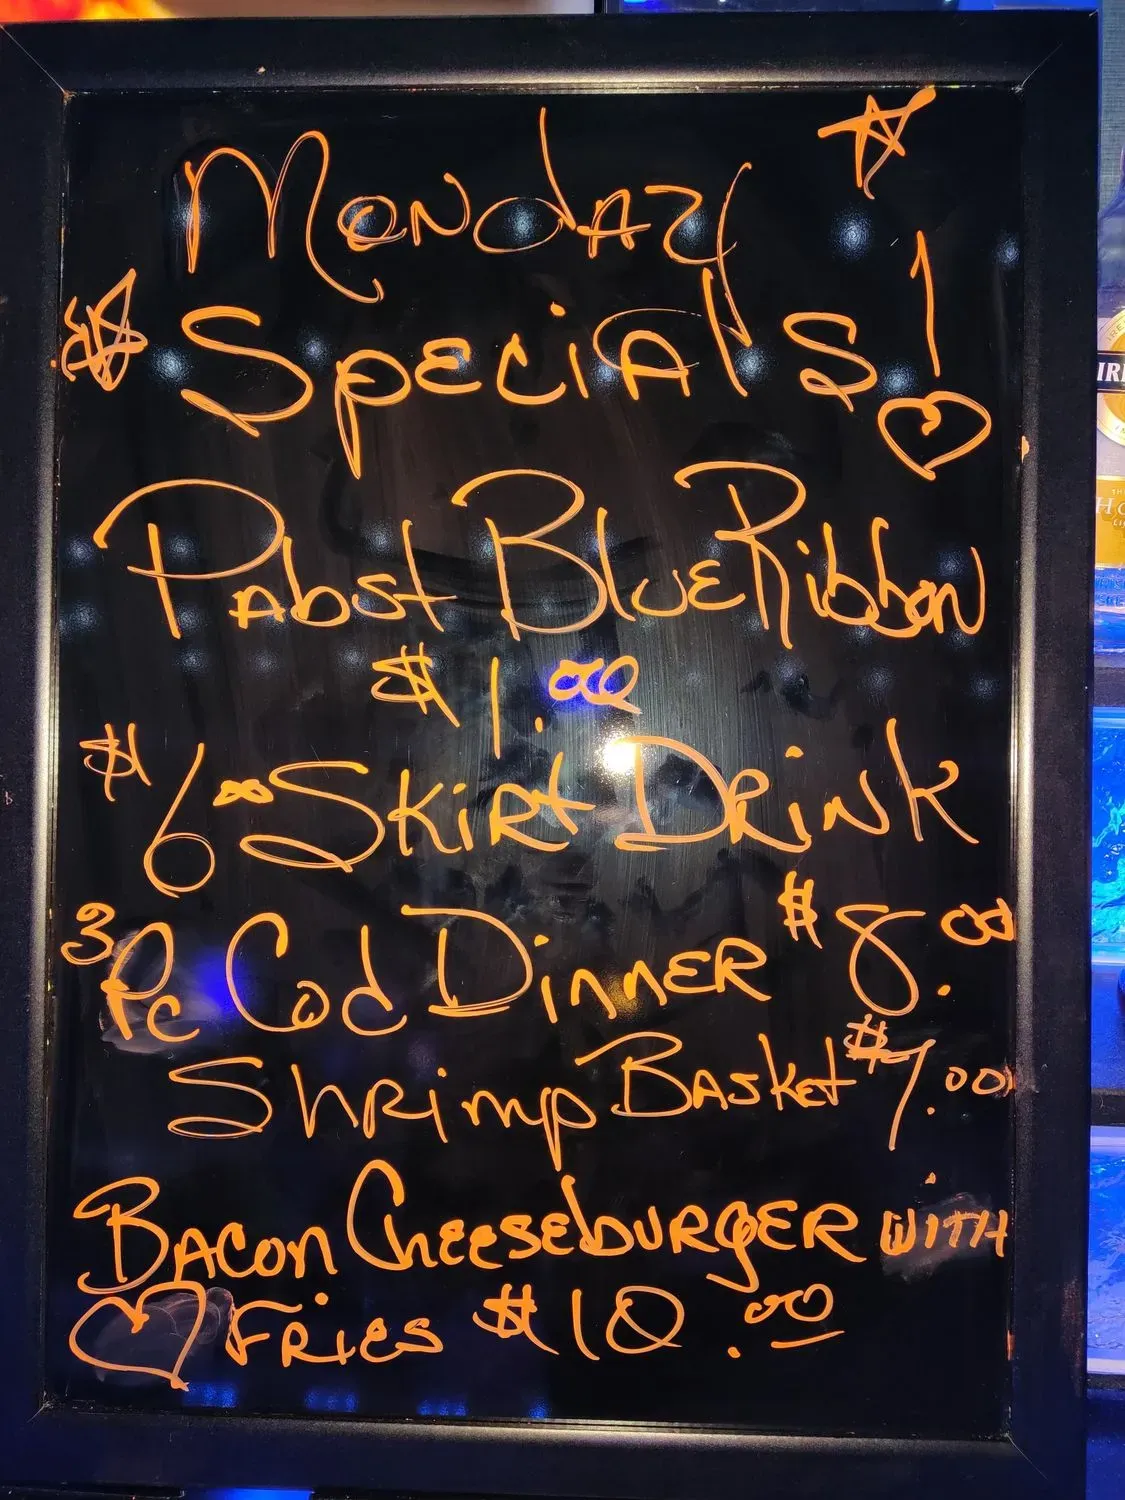 Monday
Specials!
Pabst Blue Ribbon
$1.00
$6.00 Skirt Drink
3 Pc Cod Dinner $8.00
Shrimp Basket $7.00
Bacon Cheeseburger with
Fries $10.00